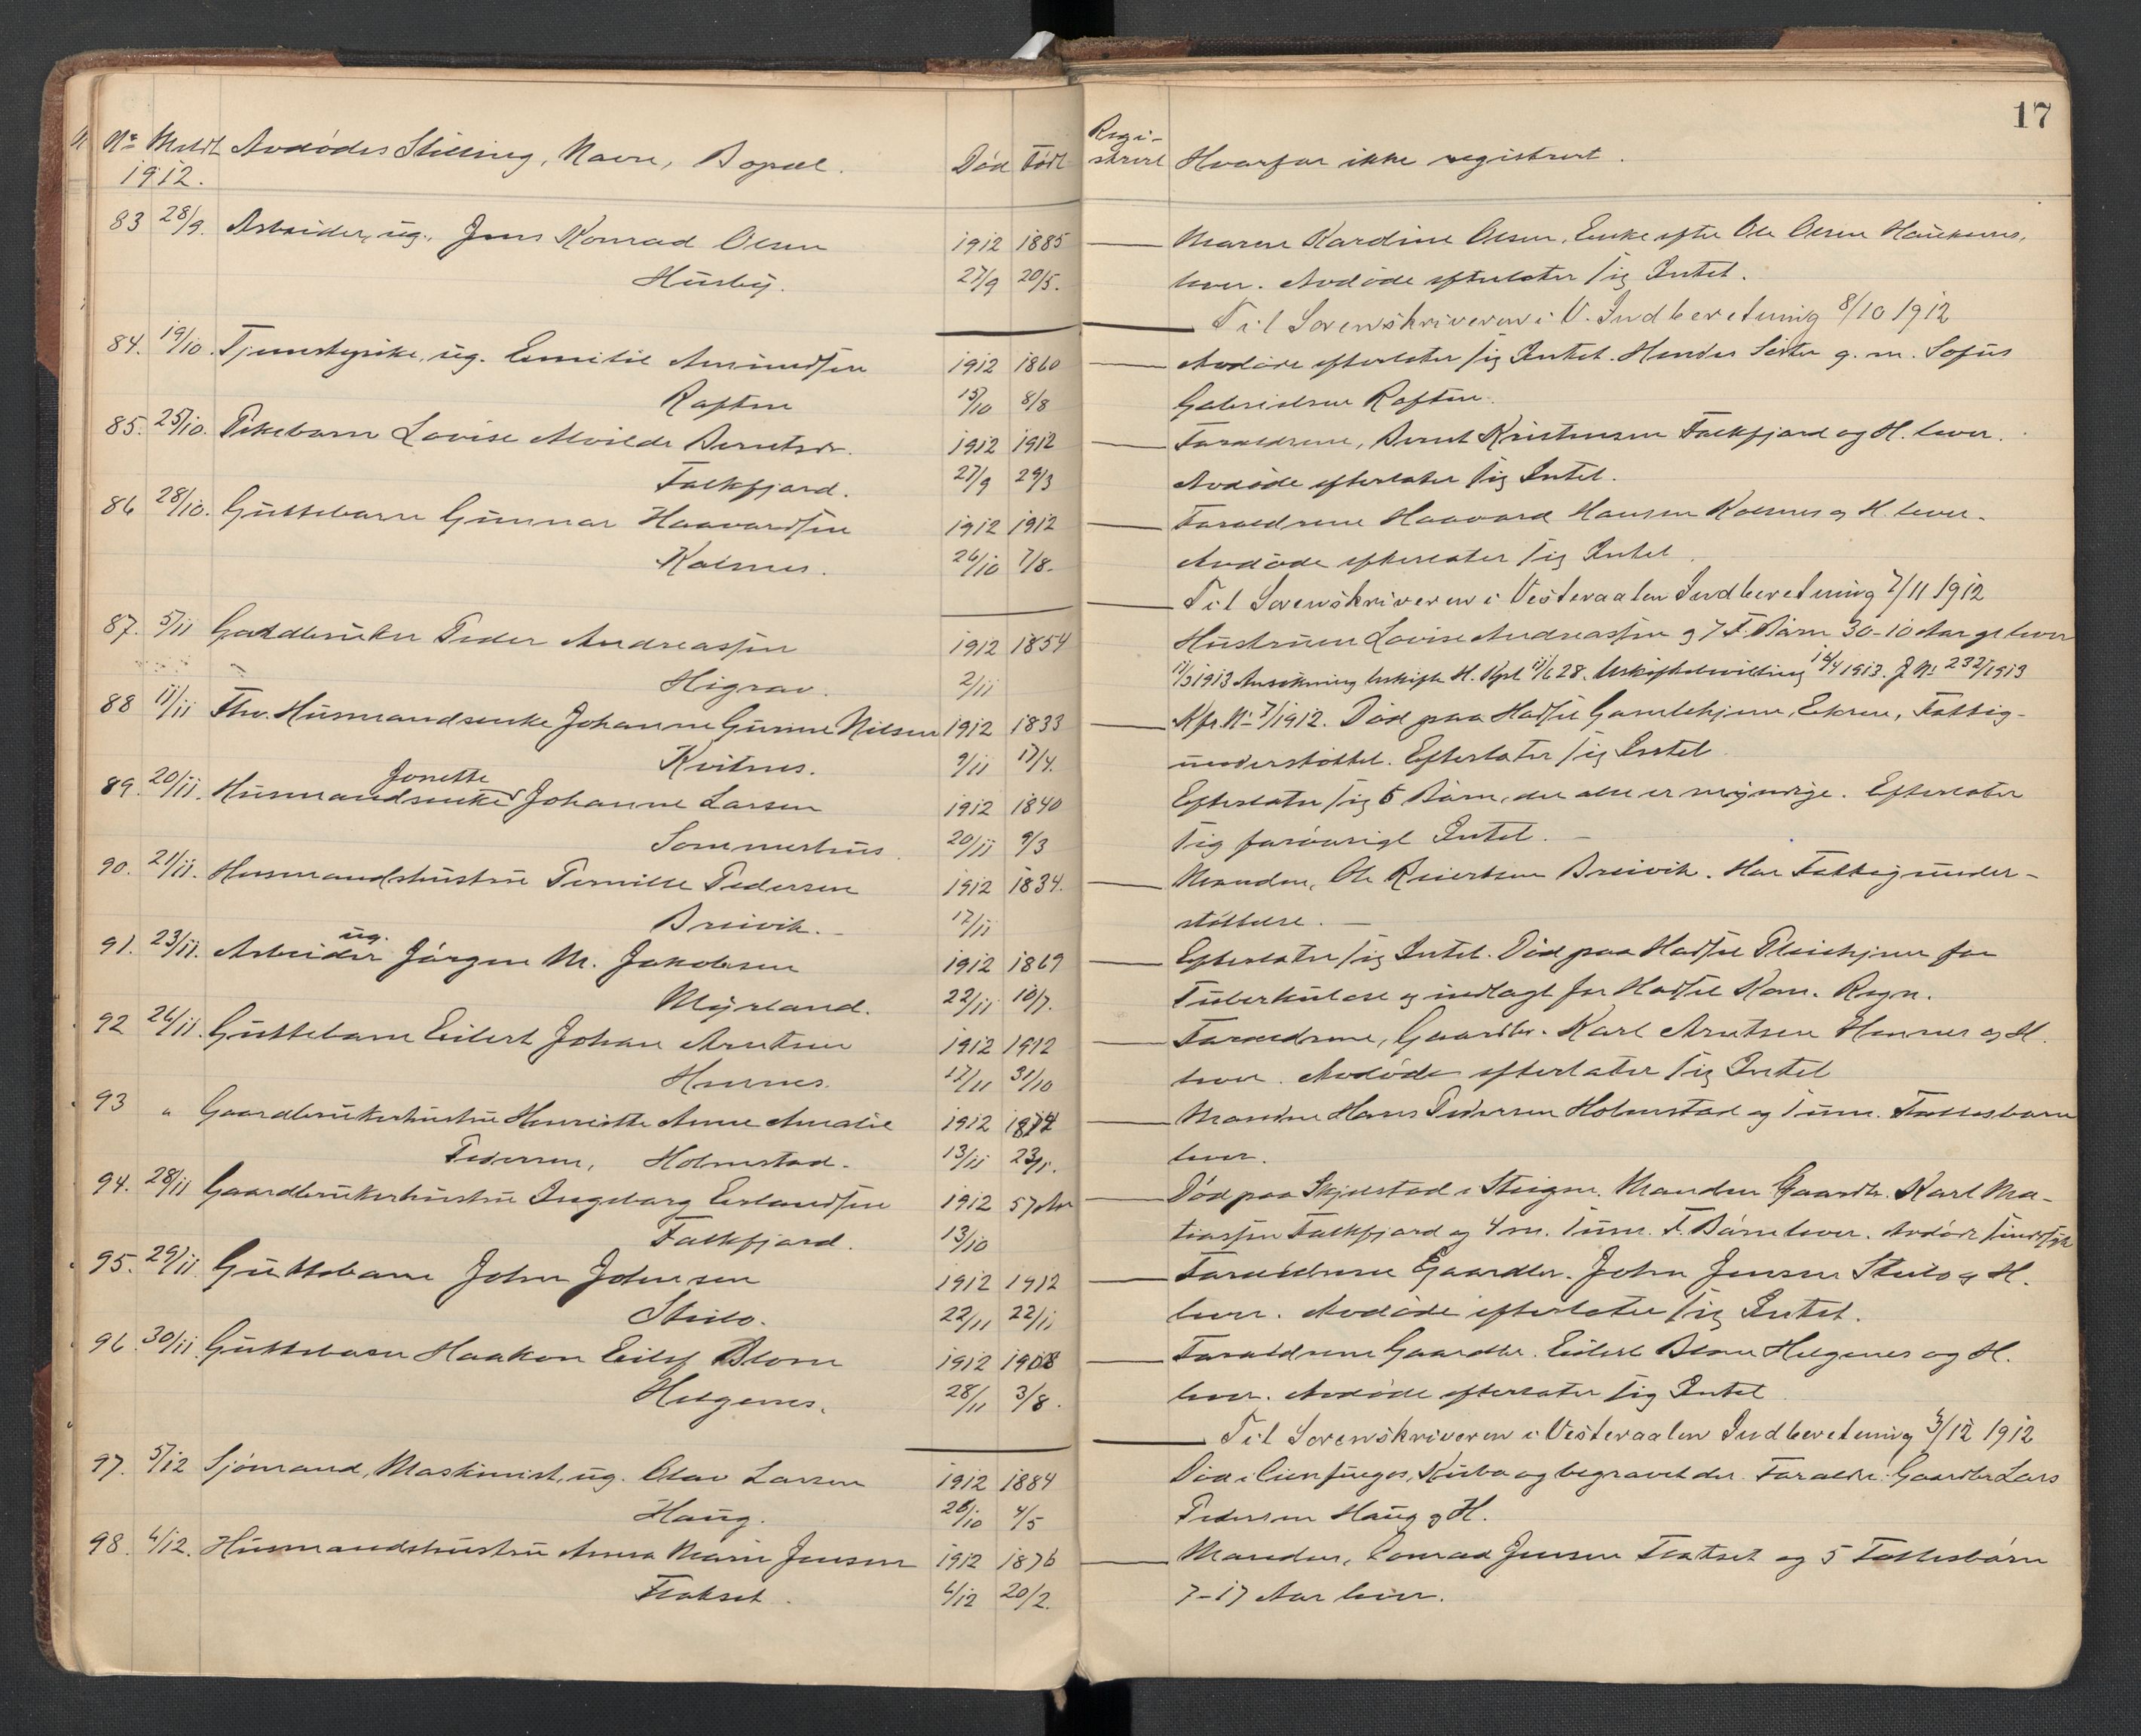 17
No Meldt Avdødes Stilling, Navn, Bopæl. Død Født Registrert Hvorfor ikke registrert.
1912.
83 28/9. Arbeider, ug., Jens Konrad Olsen 1912 1885 Maren Kardine Olsen, Enke efter Ole Olsen Haukenes,
Husby. 27/9 20/5. lever. Avdøde efterlater sig Intet.
Til Sorenskriveren i V. Indberetning 8/10 1912
84. 19/10. Tjenestepike, ug. Emilie Amundsen 1912 1860 Avdøde efterlater sig Intet. Hendes Søster g. m. Sofus
Raften 15/10 8/8 Gabrielsen Raften.
85. 25/10. Pikebarn Lovise Alvilde Berntsdr. 1912 1912 Forældrene, Bernt Kristensen Falkfjord og H. lever.
Falkfjord. 27/9 29/3 Avdøde efterlater sig Intet.
86 28/10. Guttebarn Gunnar Haavardsen 1912 1912 Forældrene Haavard Hansen Kalsnes og H. lever.
Kalsnes. 26/10 7/8. Avdøde efterlater sig Intet.
Til Sorenskriveren i Vesteraalen Indberetning 7/11 1912
87. 5/11 Gaardbruker Peder Andreassen 1912 1854 Hustruen Lovise Andreassen og 7 F. Børn 30-10 Aar gl. lever
Higrav. 2/11 11/3 1913 Ansøkning Uskifte H. Kpt 11/6 28. Uskiftebevilling 16/4 1913. J No 232/1913
88 11/11 Fhv. Husmandsenke Johanne Gurine Nilsen 1912 1833 Kfr. No 7/1912. Død paa Hadsel Gamlehjem, Ekren, Fattig-
Kvitnes. 9/11 17/4. understøttet. Efterlater sig Intet
89. 20/11. Husmandsenke Jonette Johanne Larsen 1912 1840 Efterlater sig 6 Børn, der alle er myndige. Efterlater
Sommerhus. 20/11 9/3 sig forøvrigt Intet.
90. 21/11. Husmandshustru Pernille Pedersen 1912 1834. Manden, Ole Reiertsen Breivik. Har Fattigunder-
Breivik. 17/11 støttelse.
91. 23/11. Arbeider ug. Jørgen M. Jakobsen 1912 1869 Efterlater sig Intet. Død paa Hadsel Pleiehjem for
Myrland. 22/11 10/7. Tuberkuløse og indlagt for Hadsel Kom. Regn.
92 26/11. Guttebarn Eilert Johan Arntsen 1912 1912 Forældrene, Gaardbr. Karl Arntsen Hennes og H.
Hennes. 17/11 31/10 lever. Avdøde efterlater sig Intet
93 " Gaardbrukerhustru Henriette Anne Amalie 1912 1874 Manden Hans Pedersen Holmstad og 1 um. Fællesbarn
Pedersen, Holmstad. 13/11 23/1. lever.
94. 28/11 Gaardbrukerhustru Ingeborg Erlandsen 1912 57 Aar Død paa Skjelstad i Steigen. Manden Gaardb. Karl Ma-
Falkfjord. 13/10 tiassen Falkfjord og 4 m. 1 um. F. Børn lever. Avdøde sindssyk
95. 29/11 Guttebarn John Johnsen 1912 1912 Forældrene Gaardbr. John Jensen Steilo og H.
Steilo. 22/11 22/11 lever. Avdøde efterlater sig Intet.
96. 30/11. Guttebarn Haakon Eilif Blom 1912 1908 Forældrene Gaardbr. Eilert Blom Helgenes og H.
Helgenes. 28/11 3/8. lever. Avdøde efterlater sig Intet.
Til Sorenskriveren i Vesteraalen Indberetning 3/12 1912
97. 5/12 Sjømand, Maskinist, ug. Olav Larsen 1912 1884 Død i Cienfuegos, Kuba og begravet der. Forældre: Gaardbr Lars
Haug. 26/10 4/5 Pedersen Haug og H.
98. 6/12. Husmandshustru Anna Marie Jensen 1912 1876 Manden, Conrad Jensen Flatset og 5 Fællesbørn
Flatset. 4/12 20/2. 7-17 Aar lever.